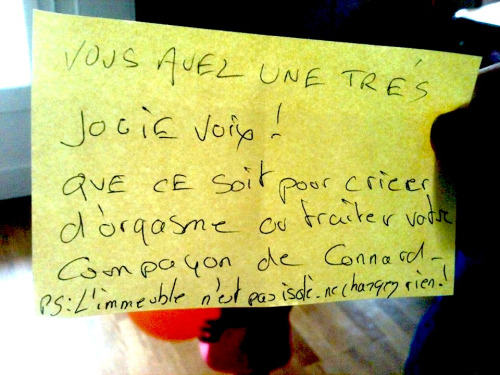 VOUS AVEZ UNE TRÉS
JOLIE VOIX !
QUE CE SOIT pour crier
d'orgasme ou traiter votre
Compagon de Connard_
PS: L'immeuble n'est pas isolé. ne changez rien !